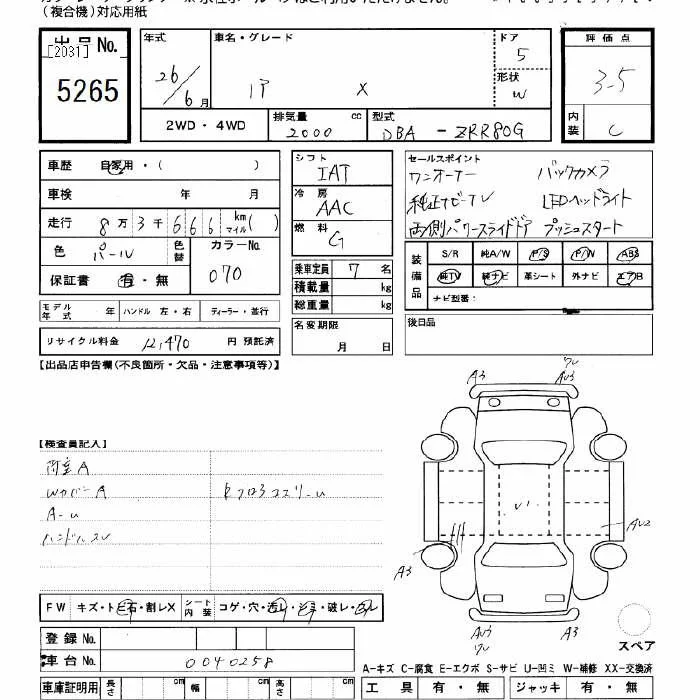 (複合機)対応用紙
出品No.
[2031]
5265
年式
26/6月
車名・グレード
X
ドア
5
形状
W
評価点
3.5
内装
C
2WD・4WD
排気量
2000
cc
型式
DBA-ZRR80G
車歴
自家用・( )
車検
年 月
走行
8万3千666
km マイル( )
色
パール
色替
カラーNo.
070
保証書
有・無
モデル年式
年
ハンドル 左・右
ディーラー・並行
リサイクル料金
12,470
円 預託済
シフト
IAT
冷房
AAC
燃料
G
乗車定員
7名
積載量
kg
総重量
kg
名変期限
月 日
セールスポイント
ワンオーナー バックカメラ
純正ナビTV LEDヘッドライト
両側パワースライドドア プッシュスタート
装備品
S/R 純A/W P/S P/W ABS
純TV 純ナビ 革シート 外ナビ エアB
ナビ型番:
後日品
【出品店申告欄(不良箇所・欠品・注意事項等)】
【検査員記入】
荷室A
WカバーA
A-u
ハンドルスレ
FW キズ・トビ石・割レX
シート内装
コゲ・穴・汚レ・シミ・破レ・スレ
登録No.
車台No.
0040258
車庫証明用
長さ
cm
幅
cm
高さ
cm
A3
ワレ
AU3
V1
AU2
A3
AU3
ワレ
A3
スペア
A-キズ C-腐食 E-エクボ S-サビ U-凹ミ W-補修 XX-交換済
工具 有・無
ジャッキ 有・無